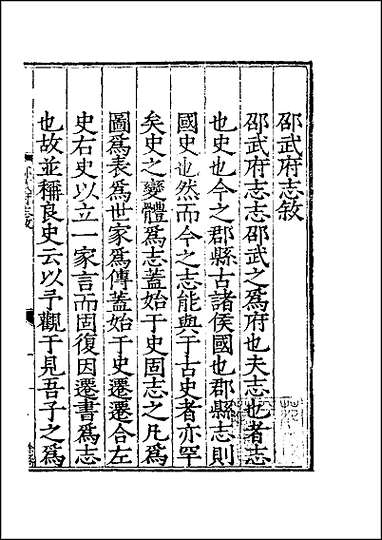 邵武府志敘
邵武府志志邵武之爲府也夫志也者志
也史也今之郡縣古諸侯國也郡縣志則
國史也然而今之志能與于古史者亦罕
矣史之變體爲志蓋始于史固志之凡爲
圖爲表爲世家爲傳蓋始于史遷遷合左
史右史以立一家言而固復因遷書爲志
也故並稱良史云以予觀于見吾子之爲